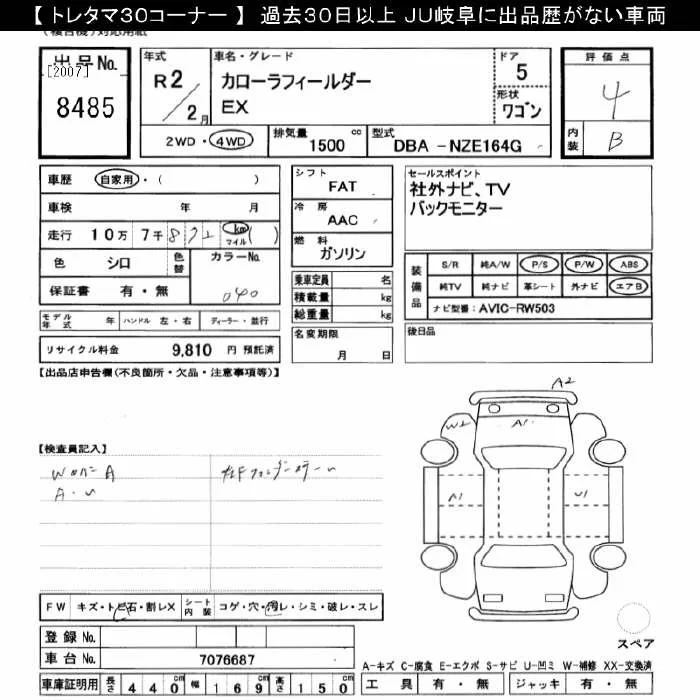 【 トレタマ30コーナー 】 過去30日以上 JU岐阜に出品歴がない車両
出品No.
[2007]
8485
年式
R2
/2月
車名・グレード
カローラフィールダー
EX
ドア
5
形状
ワゴン
2WD・4WD
排気量
1500 cc
型式
DBA -NZE164G
評価点
4
内装
B
車歴 自家用・( )
車検 年 月
走行 10万 7千 km マイル ( )
色 シロ 色替 カラーNo.
040
保証書 有・無
シフト
FAT
冷房
AAC
燃料
ガソリン
乗車定員 名
積載量 kg
総重量 kg
名変期限
月 日
セールスポイント
社外ナビ、TV
バックモニター
装備品
S/R 純A/W P/S P/W ABS
純TV 純ナビ 革シート 外ナビ エアB
ナビ型番: AVIC-RW503
後日品
モデル年式 年 ハンドル 左・右 ディーラー・並行
リサイクル料金 9,810 円 預託済
【出品店申告欄(不良箇所・欠品・注意事項等)】
【検査員記入】
A・U
A2
W2
A1
A1
U1
FW キズ・トビ石・割レX シート内装 コゲ・穴・汚レ・シミ・破レ・スレ
登録 No.
車台 No. 7076687
スペア
A-キズ C-腐食 E-エクボ S-サビ U-凹ミ W-補修 XX-交換済
車庫証明用 長さ 440cm 幅 169cm 高さ 150cm
工具 有・無 ジャッキ 有・無